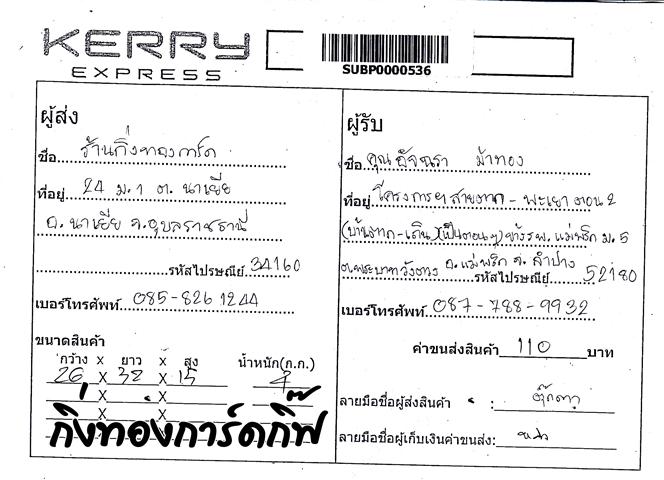 KERRY
EXPRESS
SUBP0000536
ผู้ส่ง
ชื่อ ร้านกิ่งทองการ์ด
ที่อยู่ 24 ม.1 ต. นาเยีย
อ. นาเยีย จ.อุบลราชธานี
รหัสไปรษณีย์ 34160
เบอร์โทรศัพท์ 085-826 1244
ขนาดสินค้า
กว้าง x ยาว x สูง น้ำหนัก(ก.ก.)
26 x 32 x 15 4
x x
x x
กิ่งทองการ์ดกิ๊ฟ
ผู้รับ
ชื่อ คุณ อัจฉรา ม้าทอง
ที่อยู่ โครงการฯ สายตาก - พะเยา ตอน 2
(บ้านตาก-เถิน)(เป็นตอนๆ) ข้างรพ.แม่พริก ม.5
ต.พระบาทวังตวง อ.แม่พริก จ.ลำปาง
รหัสไปรษณีย์ 52180
เบอร์โทรศัพท์ 087-788-9932
ค่าขนส่งสินค้า 110 บาท
ลายมือชื่อผู้ส่งสินค้า : ตุ๊กตา
ลายมือชื่อผู้เก็บเงินค่าขนส่ง: